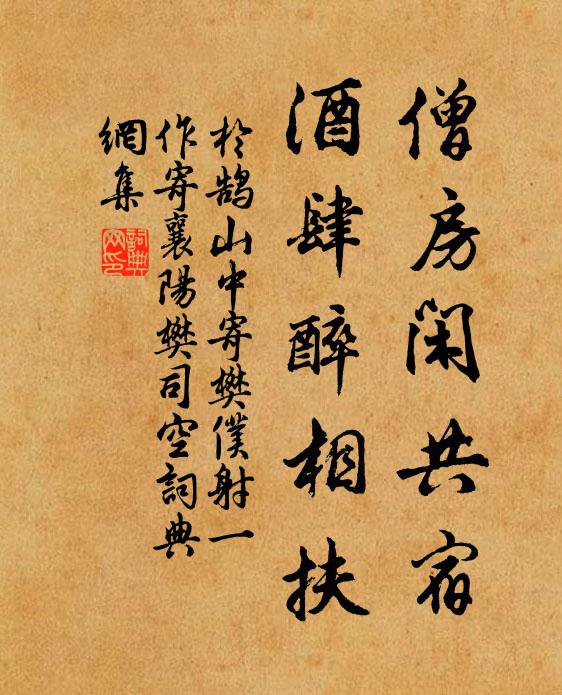 僧房閑共宿
酒肆醉相扶
於鹄山中寄樊僕射一
作寄襄陽樊司空詞典
網集
詞典
网印